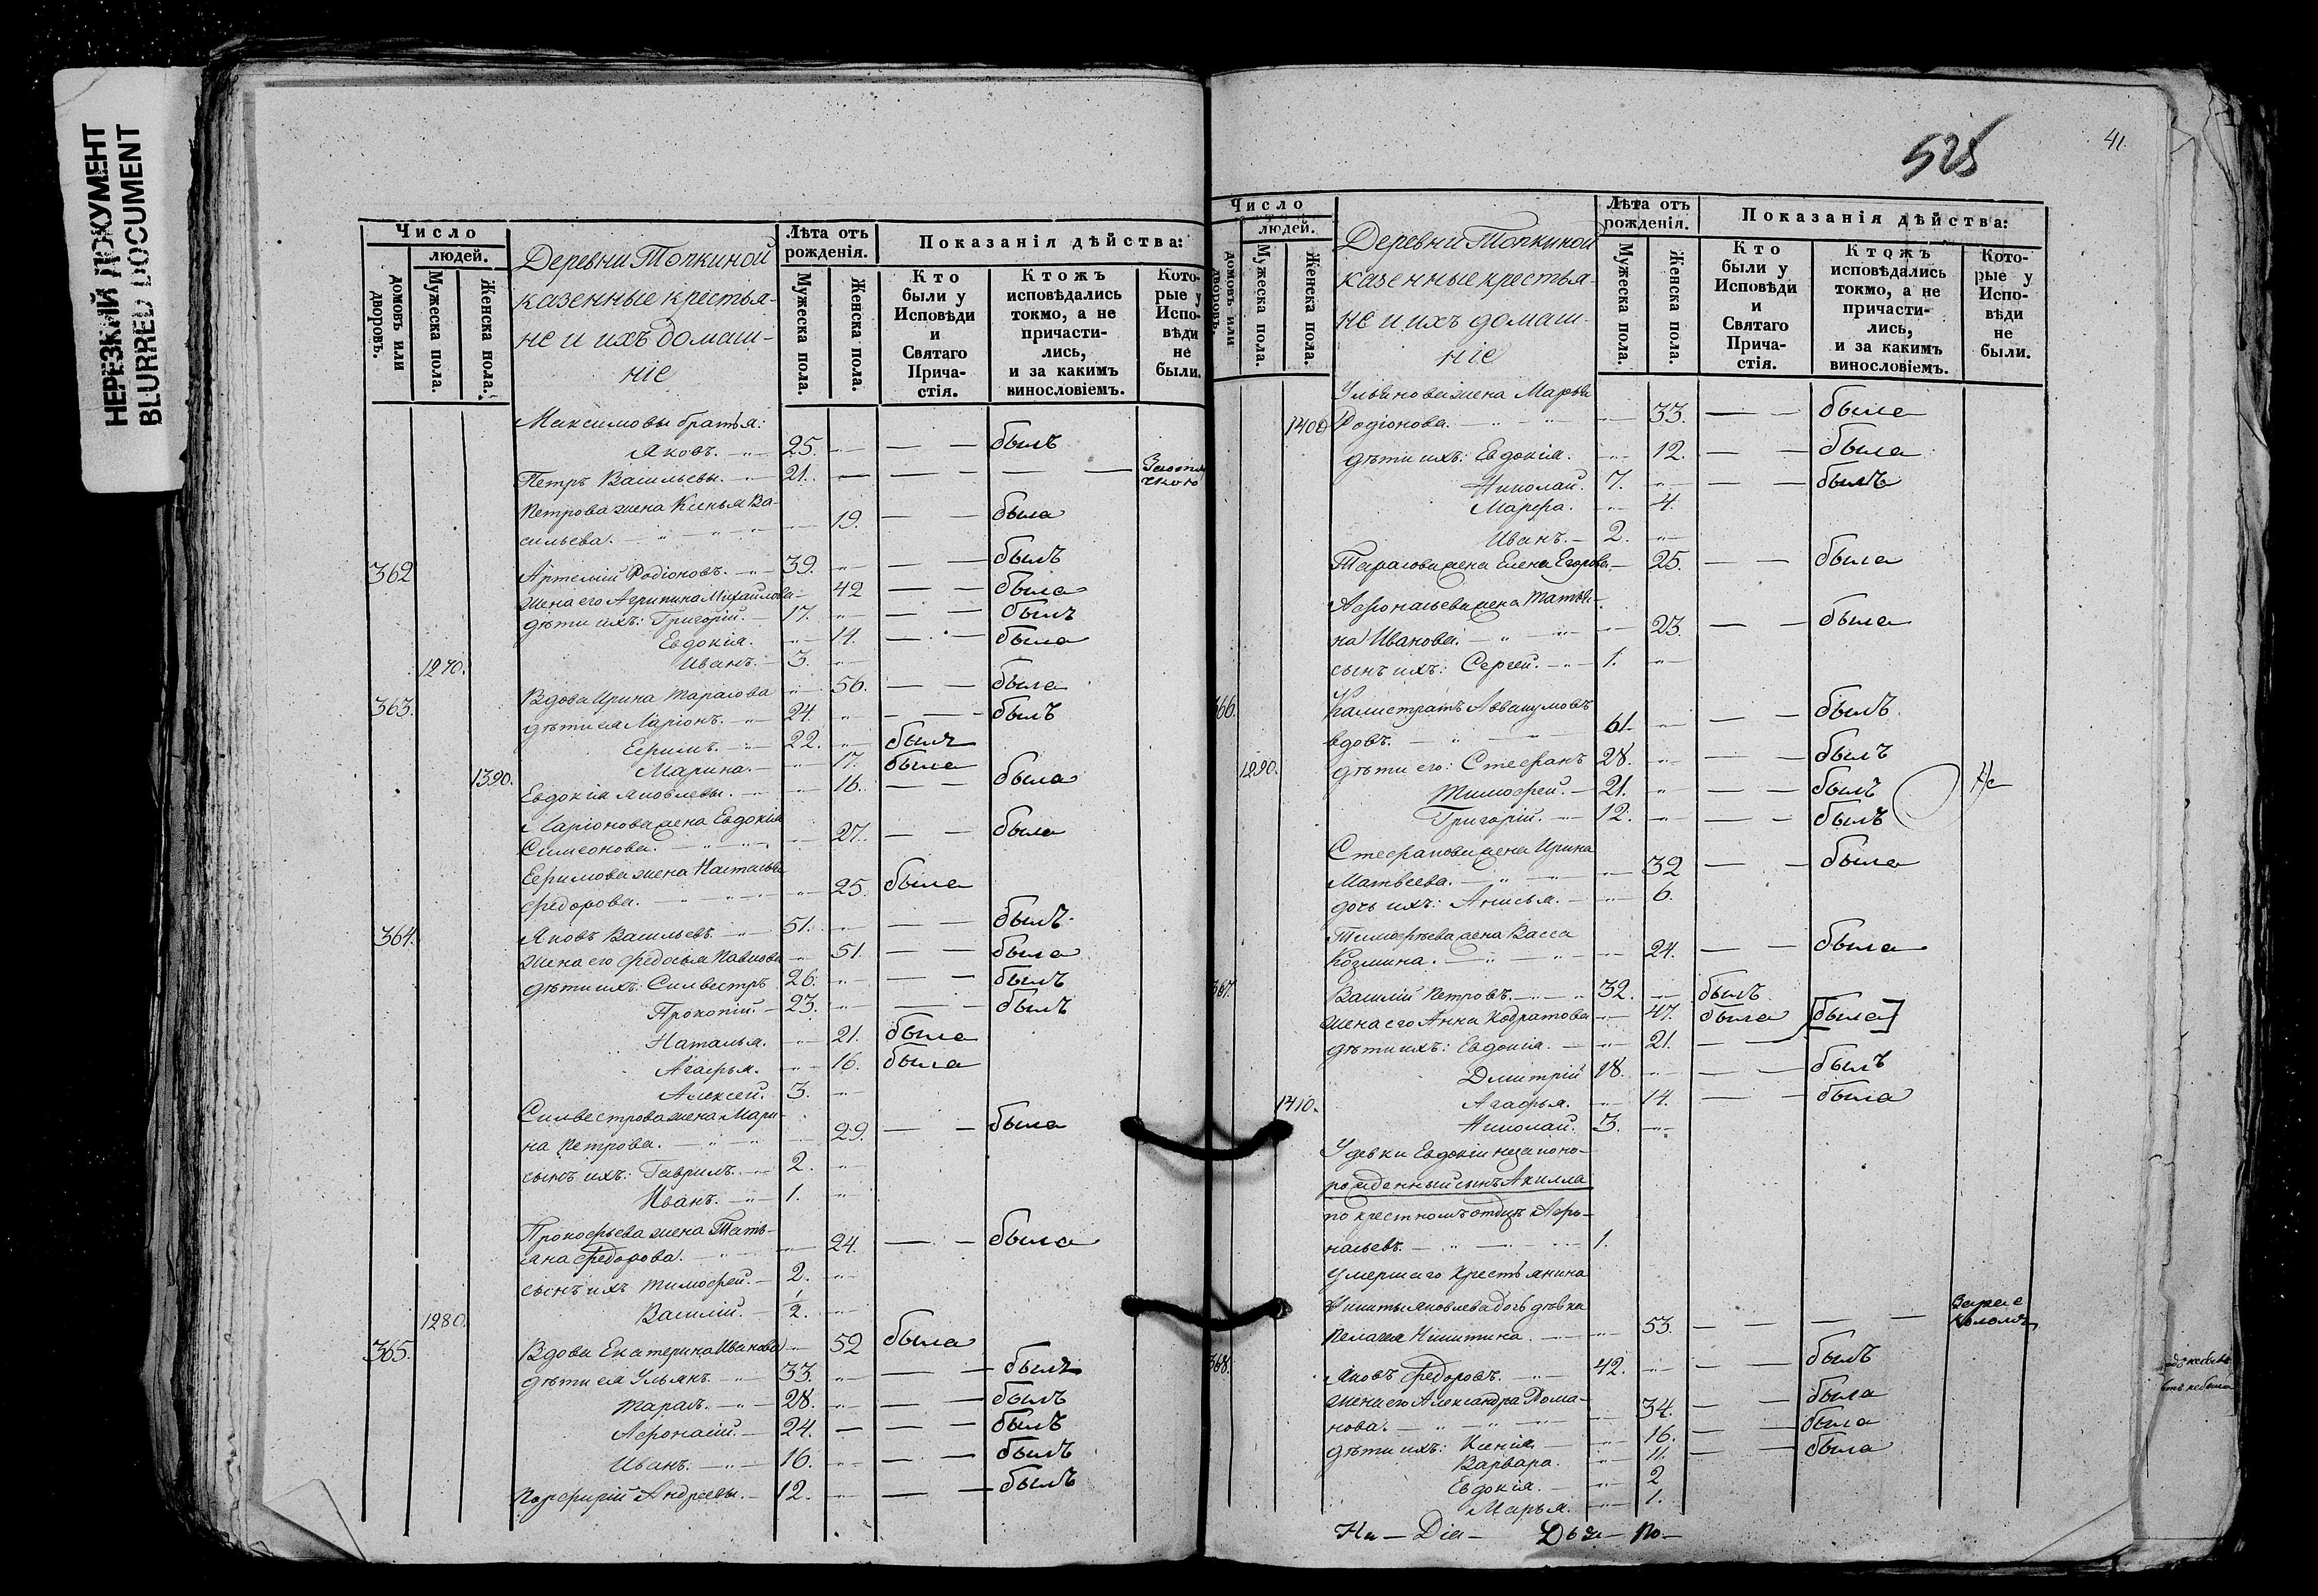 НЕРЕЗКИЙ ДОКУМЕНТ
BLURRED DOCUMENT
Число
людей.
домовъ или дворовъ.
Мужеска пола.
Женска пола.
Деревни Топкиной
казенные крестья-
не и ихъ домаш-
ніе
Лѣта отъ рожденія.
Мужеска пола.
Женска пола.
Показанія дѣйства:
Кто были у Исповѣди и Святаго Прича-стія.
Ктожъ исповѣдались токмо, а не причасти-лись, и за какимъ винословіемъ.
Кото-рые у Испо-вѣди не были.
Максимовы братья:
Яковъ. 25. былъ
Петръ Васильевы. 21.
Петрова жена Ксенья Ва-
сильева. 19. была
362 Артемій Родіоновъ. 39. былъ
жена его Агрипина Михайлова 42 была
дѣти ихъ: Григорій. 17. былъ
Евдокія. 14. была
1270. Иванъ. 3.
363. Вдова Ирина Тарасова 56. была
дѣти ея Ларіонъ. 24. былъ
Ефимъ. 22. былъ
Марина. 17. была
1390. Евдокія Яковлевы. 16. была
Ларіонова жена Евдокія
Симеонова. 27. была
Ефимова жена Наталья
Федорова. 25. была
364. Яковъ Васильевъ. 51. былъ
жена его Федосья Павлова 51. была
дѣти ихъ: Силвестръ 26. былъ
Прокопій. 23. былъ
Наталья. 21. была
Агафья. 16. была
Алексей. 3.
Силвестрова жена Мари-
на Петрова. 29. была
сынъ ихъ: Гаврилъ. 2.
Иванъ. 1.
Прокофьева жена Тать-
яна Федорова. 24. была
сынъ ихъ Тимофей. 2.
1280. Василій. 1/2.
365. Вдова Екатерина Иванова 52 была
дѣти ея Ульянъ. 33. былъ
Тарасъ. 28. былъ
Афонасій. 24. былъ
Иванъ. 16. былъ
Порфирій Андреевы. 12. былъ
525
41.
Число
людей.
домовъ или дворовъ.
Мужеска пола.
Женска пола.
Деревни Топкиной
казенные крестья-
не и ихъ домаш-
ніе
Лѣта отъ рожденія.
Мужеска пола.
Женска пола.
Показанія дѣйства:
Кто были у Исповѣди и Святаго Прича-стія.
Ктожъ исповѣдались токмо, а не причасти-лись, и за какимъ винословіемъ.
Кото-рые у Испо-вѣди не были.
Ульянова жена Марья
1400 Родіонова. 33. была
дѣти ихъ: Евдокія. 12. была
Николай. 7. былъ
Марфа. 4.
Иванъ. 2.
Тарасова жена Елена Егорова. 25. была
Афонасьева жена Татья-
на Иванова. 23. была
сынъ ихъ: Сергей. 1.
366. Калистратъ Аввакумовъ
вдовъ. 61. былъ
1290. дѣти его: Стефанъ 28. былъ
Тимофей. 21. былъ
Григорій. 12. былъ
Стефанова жена Ирина
Матвеева. 32 была
дочь ихъ: Анисья. 6.
Тимофѣева жена Васса
Козмина. 24. была
367. Василій Петровъ. 32. былъ
жена его Анна Кодратова 47. была [была]
дѣти ихъ: Евдокія. 21.
Дмитрій 18. былъ
1410. Агафья. 14. была
Николай. 3.
У девки Евдокіи незаконо-
рожденный сынъ Акилла
по крестномъ отцѣ Афо-
насьевъ. 1.
Умершаго крестьянина
Никиты Яковлева дочь дѣвка
Пелагея Никитина. 53.
368. Яковъ Федоровъ. 42. былъ
жена его Александра Рома-
нова. 34. была
дѣти ихъ: Ксенія. 16. была
Варвара. 11. была
Евдокія. 2
Марья. 1.